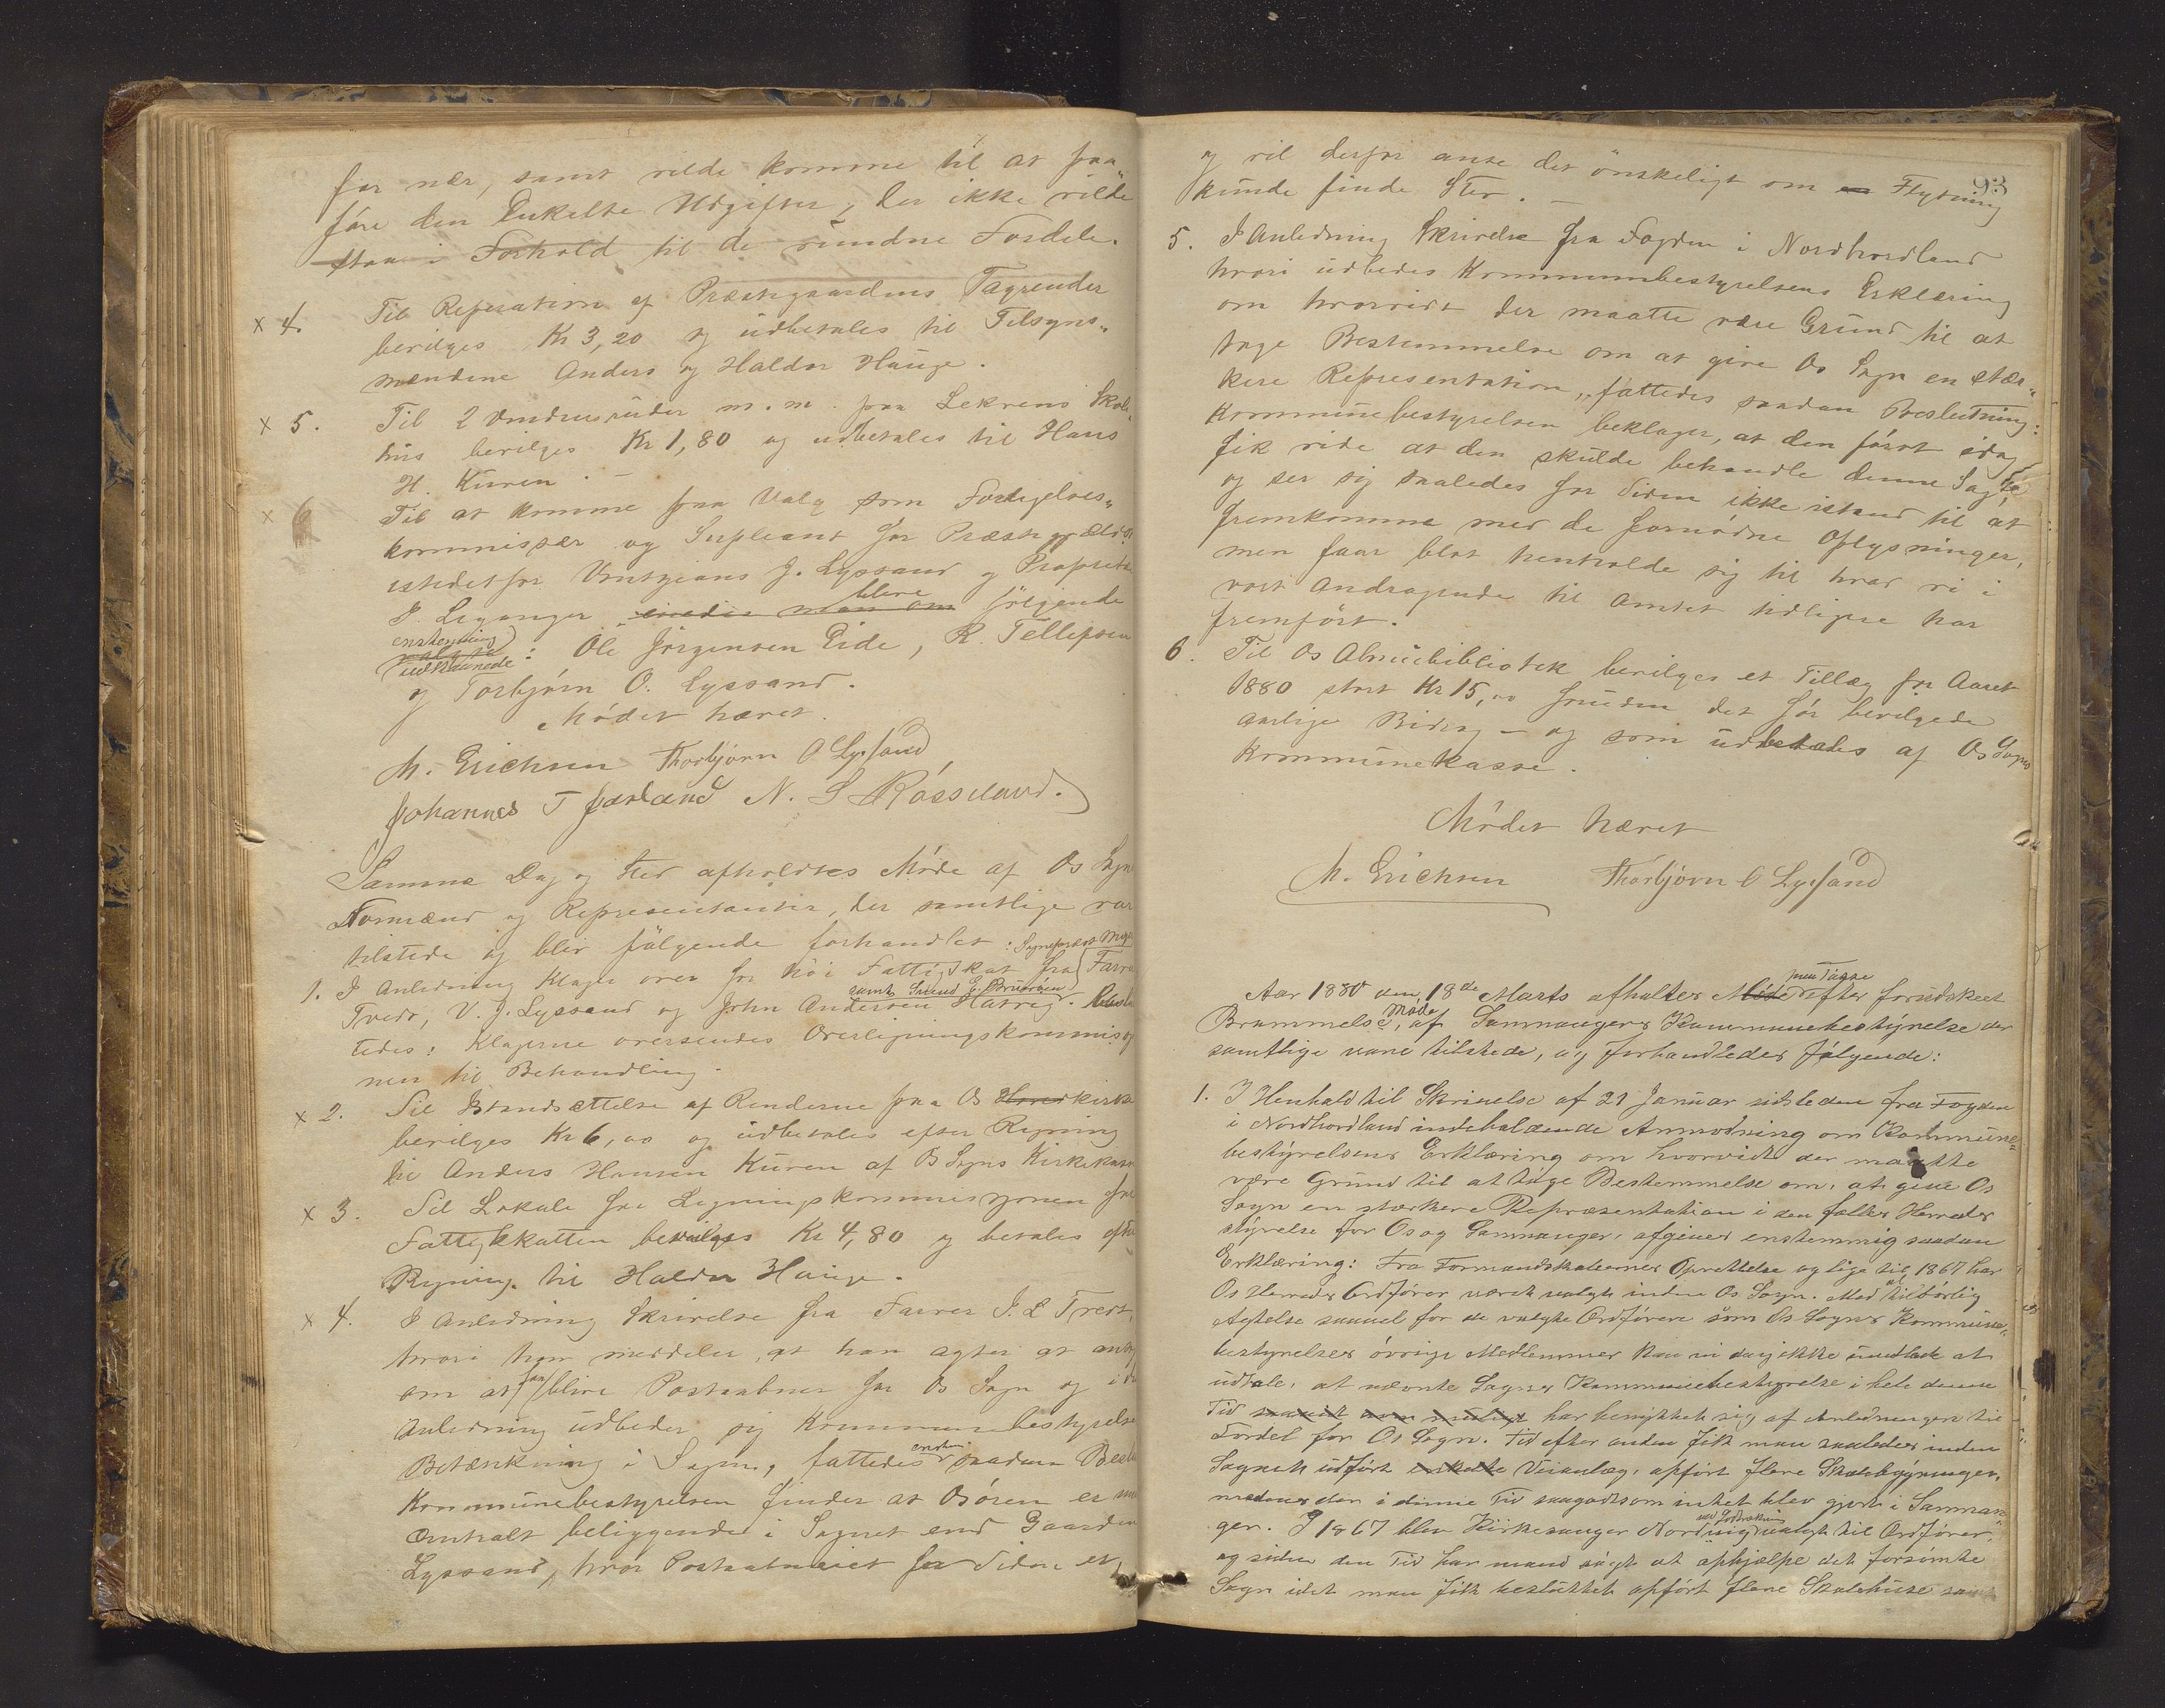 for nær, samt vilde komme til at paa„
føre den Enkelte Udgifter, der ikke vilde
staa i Forhold til de vundne Fordele.
x 4. Til Reperation af Præstegaardens Tagrender
bevilges Kr 3,20 og udbetales til Tilsyns„
mændene Anders og Haldor Hauge.
x 5. Til 2 Vinduesruder m.m. paa Lekvens Skole„
hus bevilges Kr 1,80 og udbetales til Hans
H. Kuven.
x 6 Til at komme paa Valg som Forligelses„
kommissær og Supleant for Præstegjældet
istedetfor J. Lyssand og
J. Leganger blive følgende
enstemmig
udskaarede: Ole Jørgensen Eide, R. Tellefsen
og Torbjørn O. Lyssand.
Mødet hævet.
M. Erichsen Thorbjørn O Lyssand
Johannes T Jarland N. S Røsseland.
Samme Dag og Sted afholdtes Møde af Os Sogns
Formænd og Representanter, der samtlige var
tilstede og blev følgende forhandlet:
1. I Anledning Klage over for høi Fattigskat fra Farver
samt Smed
Tvedt, V. J. Lyssand og John Andersen Hatvig. Beslut
tedes: Klagerne oversendes Overligningskommisjo
nen til Behandling.
x 2. Til Istandsættelse af Renderne paa Os kirke
bevilges Kr 6,00 og udbetales efter Regning
til Anders Hansen Kuven af Os Sogns Kirkekasse
x 3. Til Lokale for Ligningskommissjonen for
Fattigskatten bevilges Kr 4,80 og betales efter
Regning til Haldor Hauge.
x 4. I Anledning Skrivelse fra Farver J. L Tvedt,
hvori han meddeler, at han agter at
om at faa blive Postaabner for Os Sogn og i
Anledning udbeder sig Kommunebestyrelse
Betænkning i Sagen, fattedes saadan Beslu
Kommunebestyrelsen finder at Osøren er
centralt beliggende i Sognet end Gaarden
Lyssand, hvor Postaabneriet for Tiden er,
93
og vil derfor anse det ønskeligt om Flytning
kunde finde Sted. —
5. I Anledning Skrivelse fra Fogden i Nordhordland
hvori udbedes Kommunebestyrelsens Erklæring
om hvorvidt der maatte være Grund til at
tage Bestemmelse om at give Os Sogn en stær„
kere Representation, fattedes saadan Beslutning:
Kommunebestyrelsen beklager, at den først idag
fik vide at den skulde behandle denne Sag,
og ser sig saaledes for Tiden ikke istand til at
fremkomme med de fornødne Oplysninger,
men faar blot henholde sig til hvad vi i
vort Andragende til Amtet tidligere har
fremført.
6. Til Os Almuebibliotek bevilges et Tillæg for Aaret
1880 stort Kr 15,00 foruden det før bevilgede
aarlige Bidrag — og som udbetales af Os Sogns
Kommunekasse.
Mødet hævet
M. Erichsen Thorbjørn O Lyssand
Aar 1880 den 18de Marts afholdtes efter forudskeet
Brammelse, Møde af Samnangers Kommunebestyrelse der
samtlige vare tilstede, og forhandledes følgende:
1. I Henhold til Skrivelse af 21 Januar sidstleden fra Fogden
i Nordhordland indeholdende Anmodning om Kommune„
bestyrelsens Erklæring om hvorvidt der maatte
være Grund til at tage Bestemmelse om, at give Os
Sogn en stærkere Repræsentation i den fælles Herreds
styrelse for Os og Samnanger, afgives enstemmig saadan
Erklæring: Fra Formandskabernes Oprettelse og lige til 1867 har
Os Herreds Ordfører været valgt inden Os Sogn. Med al tilbørlig
Agtelse saavel for de valgte Ordførere som Os Sogns Kommune„
bestyrelses øvrige Medlemmer kan vi dog ikke undlade at
udtale, at nævnte Sogns Kommunebestyrelse i hele denne
Tid har benyttet sig af Anledningen til
Fordel for Os Sogn. Tid efter anden fik man saaledes inden
Sognet udført enkelte Veianlæg, opført flere Skolebygninger,
medens der i denne Tid saagodtsom intet blev gjort i Samnan„
ger. I 1867 blev Kirkesanger Nordvig valgt til Ordfører,
og siden den Tid har mand søgt at ophjælpe det forsømte
Sogn idet man fik besluttet opført flere Skolehuse samt